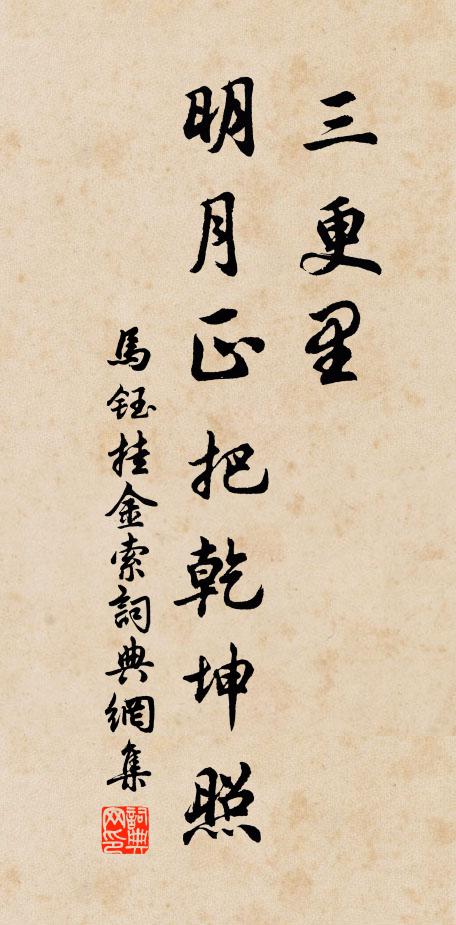 三更里
明月正把乾坤照
馬鈺挂金索詞典網集
詞典
网印